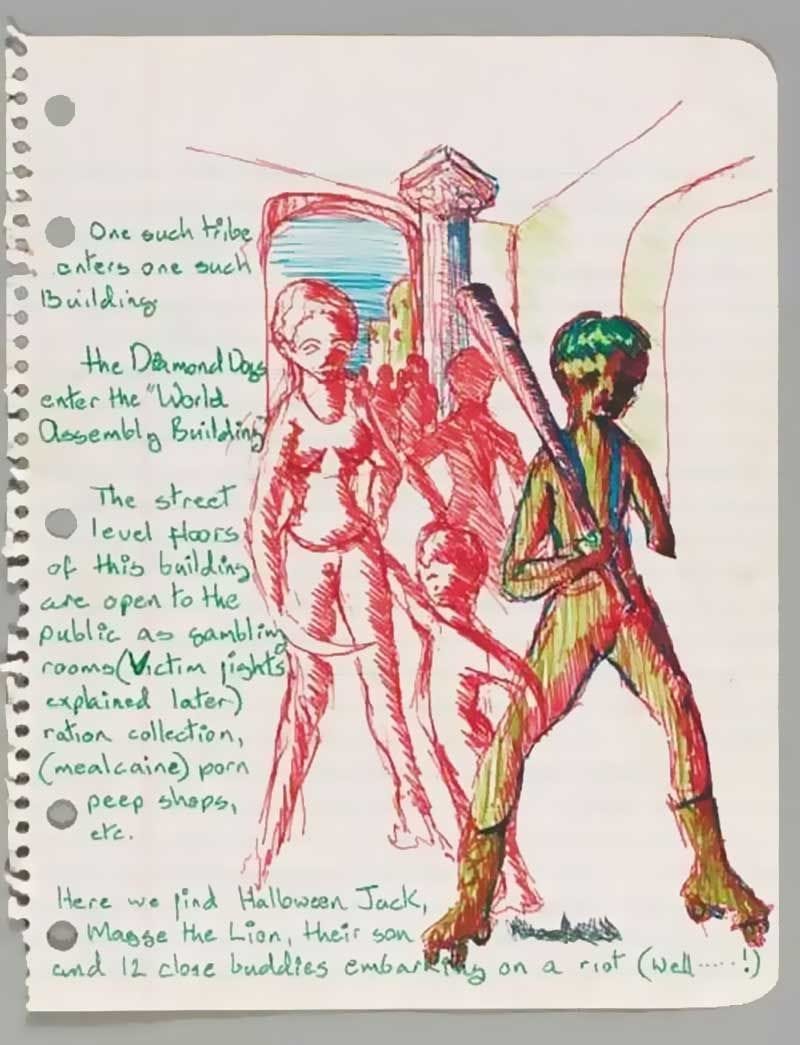 One such tribe
enters one such
Building
the Diamond Dogs
enter the "World
Assembly Building"
The street
level floors
of this building
are open to the
public as gambling
rooms (Victim fights
explained later)
ration collection,
(mealcaine) porn
peep shops,
etc.
Here we find Halloween Jack,
Magge the Lion, their son
and 12 close buddies embarking on a riot (Well.....!)